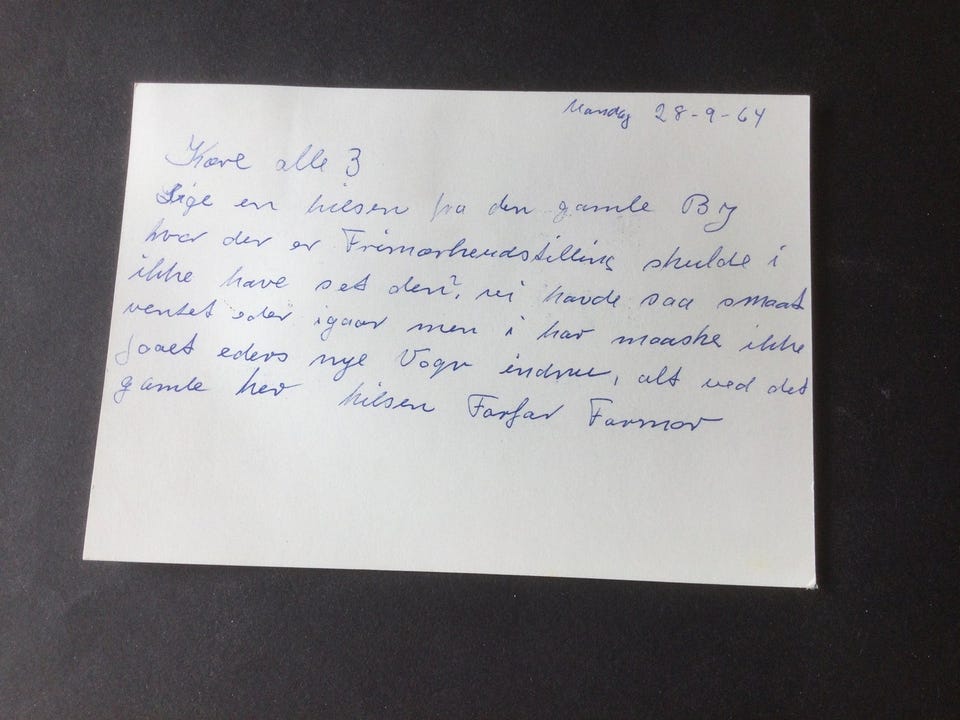 Mandag 28-9-64
Kære alle 3
Lige en hilsen fra den gamle By
hvor der er Frimærkeudstilling skulde i
ikke have set den?, vi havde saa smaat
ventet eder igaar men i har maaske ikke
faaet eders nye Vogn endnu, alt ved det
gamle her hilsen Farfar Farmor